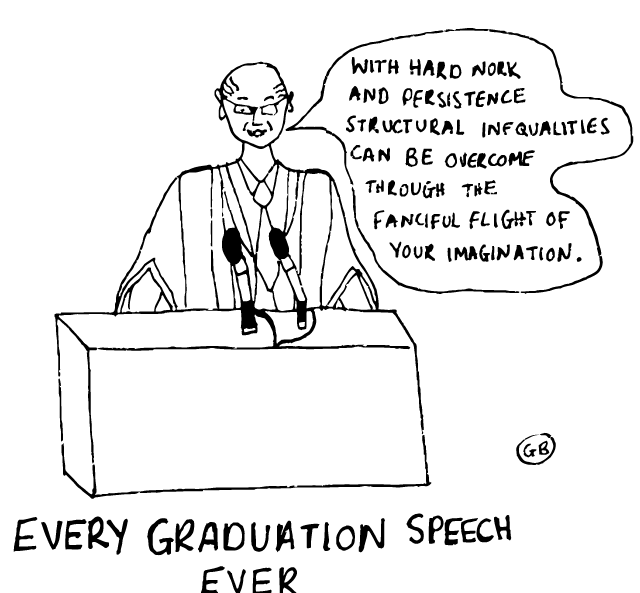 WITH HARD WORK
AND PERSISTENCE
STRUCTURAL INEQUALITIES
CAN BE OVERCOME
THROUGH THE
FANCIFUL FLIGHT OF
YOUR IMAGINATION.
GB
EVERY GRADUATION SPEECH
EVER